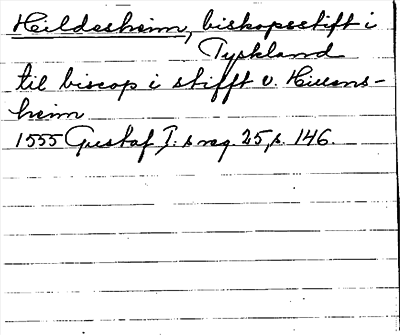 Hildesheim, biskopsstift i
Tyskland
til biscop i stifft v. Hillens-
heim
1555 Gustaf I:s reg. 25, s. 146.